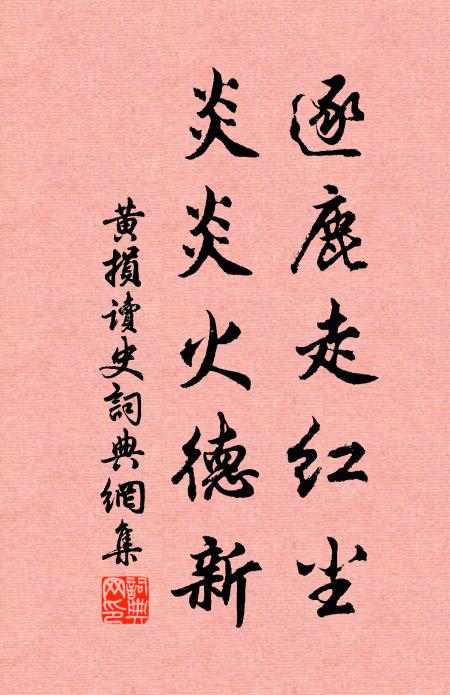 逐鹿走红尘
炎炎火德新
黄损读史词典網集
詞典网印